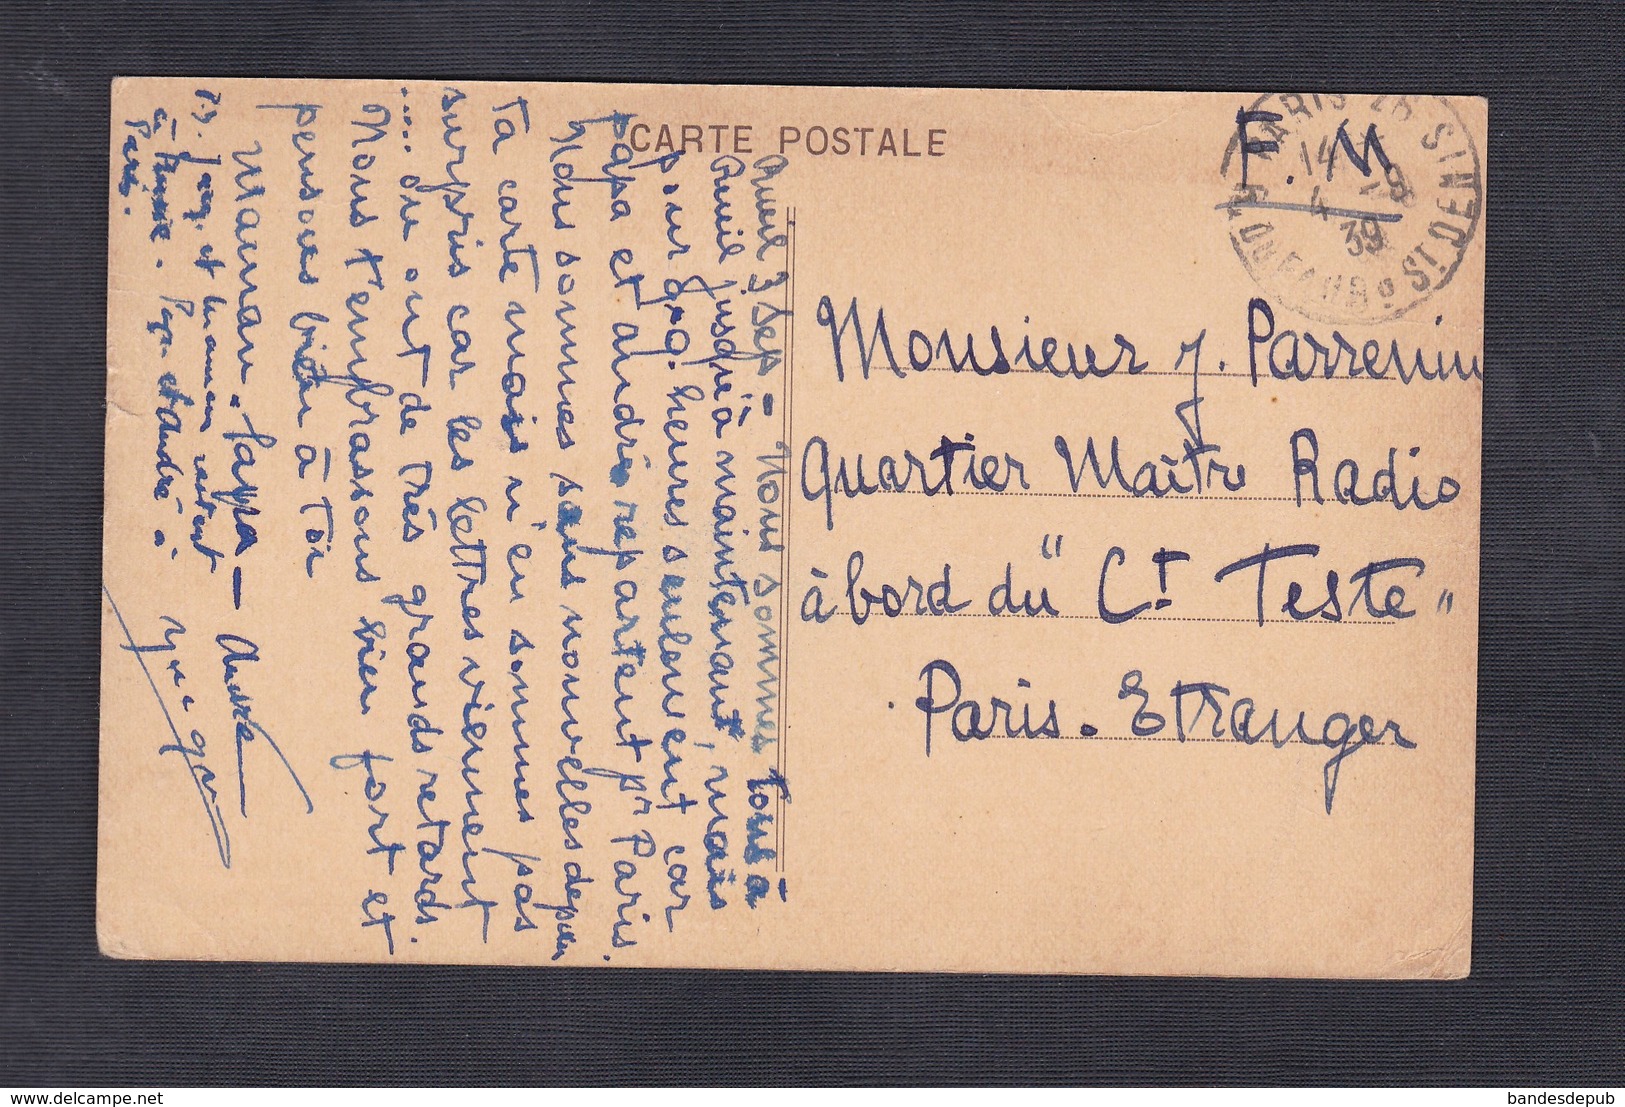 CARTE POSTALE
F.M
PARIS 26 ST DENIS
14
4 -9
39
R. DU FAUBG
Monsieur J. Parrenin
Quartier Maître Radio
à bord du "Ct Teste"
Paris. Etranger
Rueil 3 Sep - Nous sommes tous à
Rueil jusqu'à maintenant, mais
pour qq. heures seulement car
papa et André repartent pr Paris.
Nous sommes sans nouvelles depuis
ta carte mais n'en sommes pas
surpris car les lettres viennent
.... ou ont de très grands retards.
Nous t'embrassons bien fort et
pensons bien à toi
Maman, Papa - André
P.S. Jacq. et maman restent
à Russie. Papa et André à
Paris.
bandesdepub